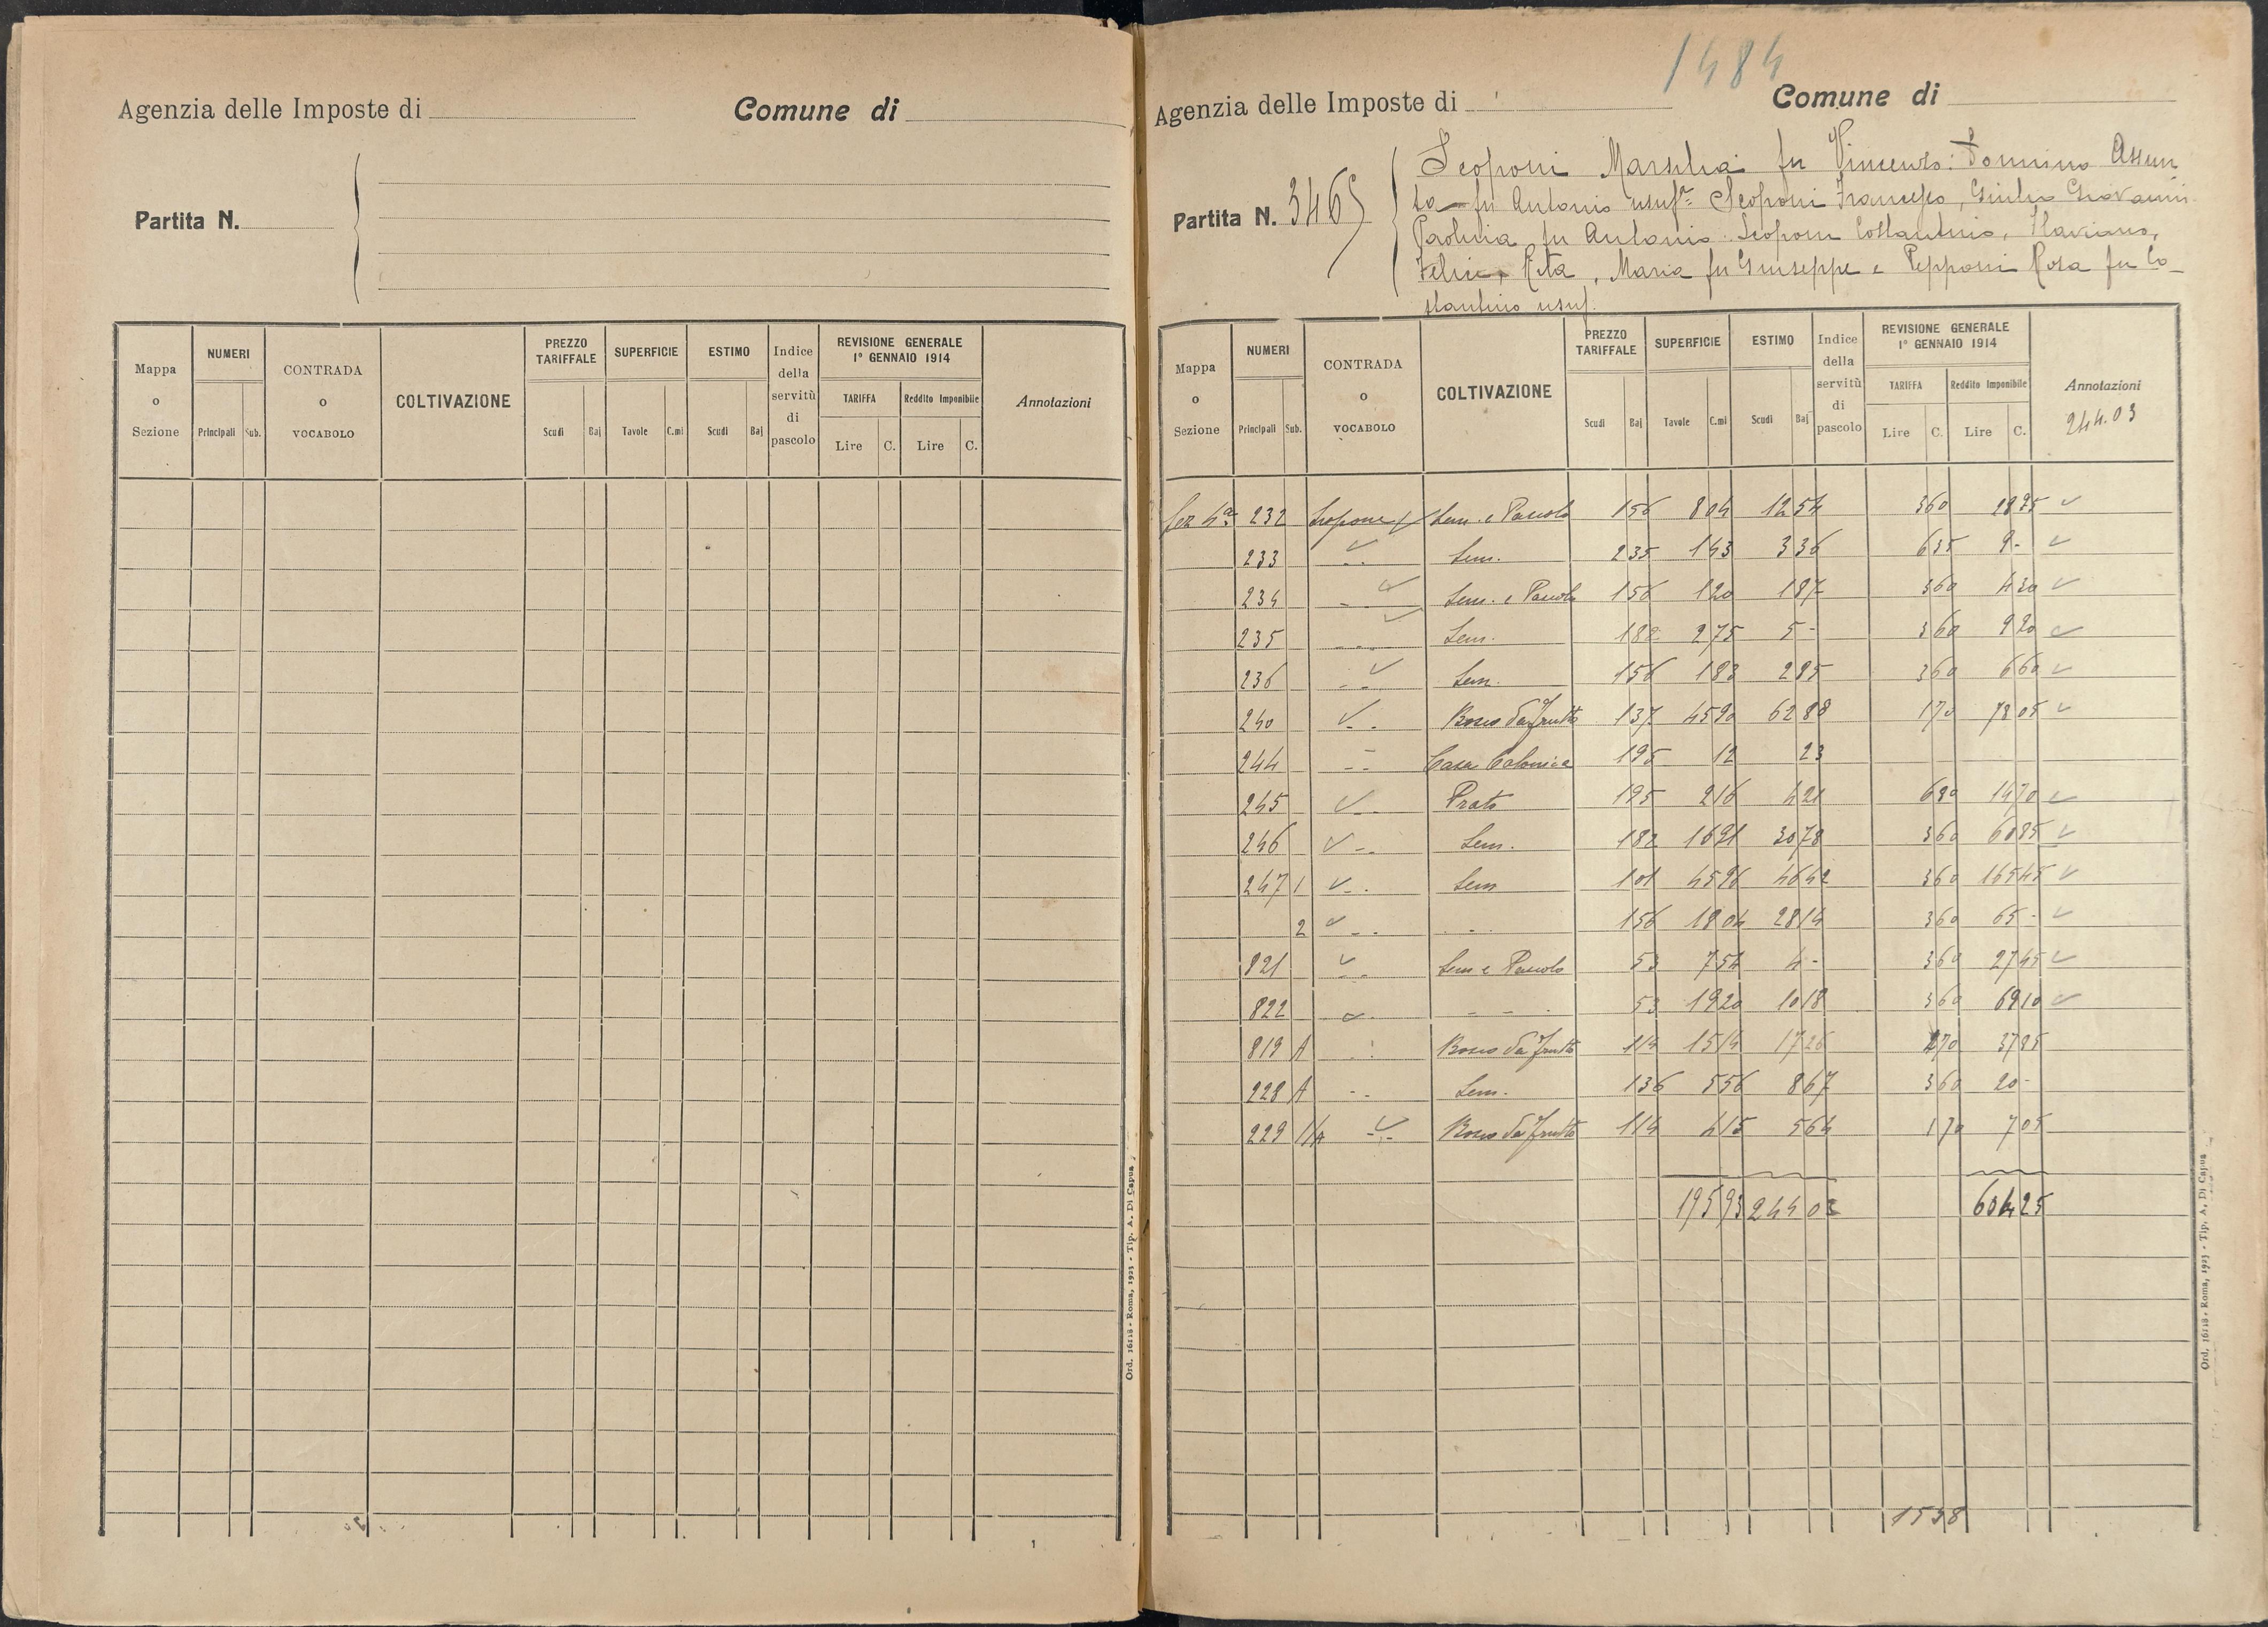 Agenzia delle Imposte di Comune di
Partita N.
Mappa o Sezione NUMERI Principali Sub. CONTRADA o VOCABOLO COLTIVAZIONE PREZZO TARIFFALE Scudi Baj SUPERFICIE Tavole C.mi ESTIMO Scudi Baj Indice della servitù di pascolo REVISIONE GENERALE 1° GENNAIO 1914 TARIFFA Lire C. Reddito Imponibile Lire C. Annotazioni
Ord. 16118 - Roma, 1923 - Tip. A. Di Capua
1
1484
Agenzia delle Imposte di Comune di
Partita N. 346
Scoponi Marsilia fu Vincenzo: Tonnino Assun
ta fu Antonio usuf. Scoponi Francesco, Giulio Giovanni
Paolina fu Antonio. Scoponi Costantino, Flaviano,
Felice, Rita, Maria fu Giuseppe e Pepponi Rosa fu Co_
stantino usuf.
Mappa o Sezione NUMERI Principali Sub. CONTRADA o VOCABOLO COLTIVAZIONE PREZZO TARIFFALE Scudi Baj SUPERFICIE Tavole C.mi ESTIMO Scudi Baj Indice della servitù di pascolo REVISIONE GENERALE 1° GENNAIO 1914 TARIFFA Lire C. Reddito Imponibile Lire C. Annotazioni
244.03
Sez 4a 232 Scopone Sem. e Pascolo 156 804 1254 360 2895
233 Sem. 235 143 336 635 9-
234 Sem. e Pascolo 156 120 187 360 430
235 Sem. 182 275 5- 360 990
236 Sem. 156 183 285 360 660
240 Bosco da frutto 137 4590 6288 170 7805
244 Casa Colonica 195 12 23
245 Prato 195 216 421 680 1470
246 Sem. 182 1691 3078 360 6085
247 1 Sem 101 4596 4642 360 16545
2 156 1804 2814 360 65-
821 Sem e Pascolo 53 754 4- 360 2745
822 53 1920 1018 360 6910
819 A Bosco da frutto 114 1514 1726 3785
228 A Sem. 156 556 867 360 20-
229 1/A Bosco da frutto 114 415 564 170 705
19593 24403 60425
1538
Ord. 16118 - Roma, 1923 - Tip. A. Di Capua